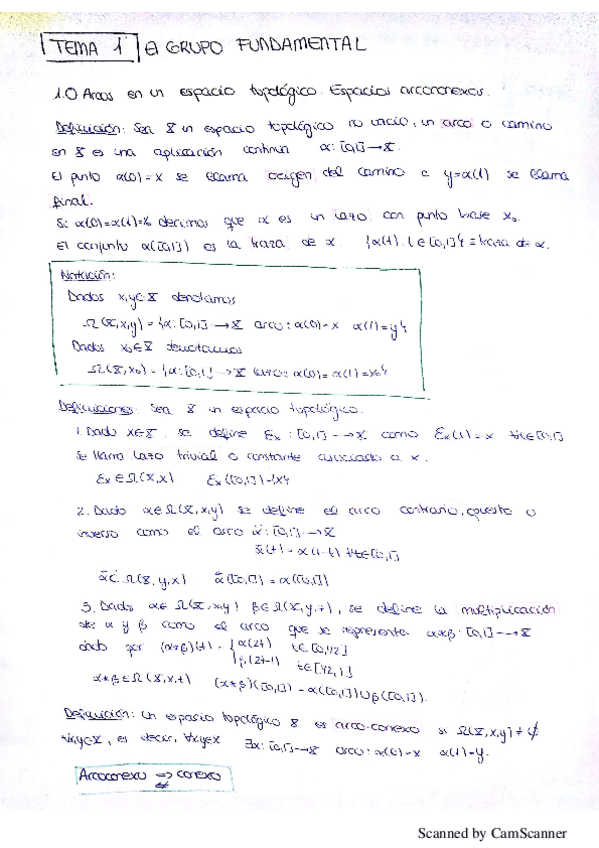 TEMA 1 El GRUPO FUNDAMENTAL
1.0 Arcos en un espacio topológico. Espacios arcoconexos.
Definición: Sea X un espacio topológico no vacío, un arco o camino
en X es una aplicación continua α: [0,1] → X.
El punto α(0)=x se llama origen del camino e y=α(1) se llama
final.
Si α(0)=α(1)=x₀ decimos que α es un lazo con punto base x₀.
El conjunto α([0,1]) es la traza de α. {α(t): t∈[0,1]} = traza de α.
Notación:
Dados x,y∈X denotamos
Ω(X,x,y) = {α: [0,1] → X arco: α(0)=x α(1)=y}
Dados x₀∈X denotamos
Ω(X,x₀) = {α: [0,1] → X lazo: α(0)=α(1)=x₀}
Definiciones: Sea X un espacio topológico.
1. Dado x∈X, se define Ɛx: [0,1] → X como Ɛx(t)=x ∀t∈[0,1]
se llama lazo trivial o constante asociado a x.
Ɛx ∈ Ω(X,x) Ɛx([0,1])={x}
2. Dado α∈Ω(X,x,y) se define el arco contrario, opuesto o
inverso como el arco α̃: [0,1] → X
α̃(t) = α(1-t) ∀t∈[0,1]
α̃ ∈ Ω(X,y,x) α̃([0,1]) = α([0,1])
3. Dado α∈Ω(X,x,y) β∈Ω(X,y,z), se define la multiplicación
de α y β como el arco que se representa α*β: [0,1] → X
dado por (α*β)(t) = { α(2t) t∈[0,1/2]
β(2t-1) t∈[1/2,1]
α*β∈Ω(X,x,z) (α*β)([0,1]) = α([0,1])∪β([0,1]).
Definición: Un espacio topológico X es arco-conexo si Ω(X,x,y) ≠ ∅
∀x,y∈X, es decir, ∀x,y∈X ∃α: [0,1] → X arco: α(0)=x α(1)=y.
Arcoconexo ⇒ conexo
⇍
Scanned by CamScanner